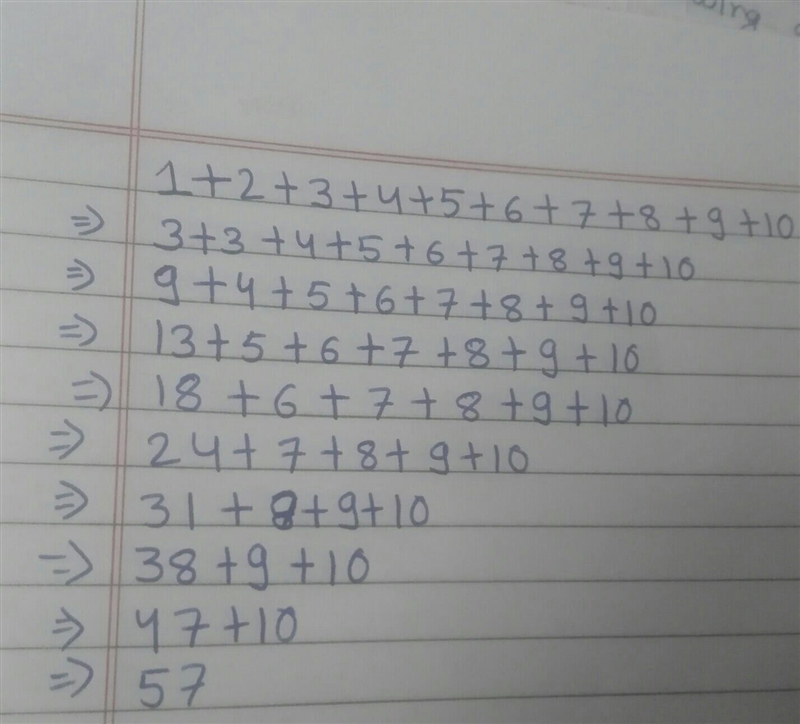 1+2+3+4+5+6+7+8+9+10
⇒ 3+3+4+5+6+7+8+9+10
⇒ 9+4+5+6+7+8+9+10
⇒ 13+5+6+7+8+9+10
⇒ 18+6+7+8+9+10
⇒ 24+7+8+9+10
⇒ 31+8+9+10
⇒ 38+9+10
⇒ 47+10
⇒ 57